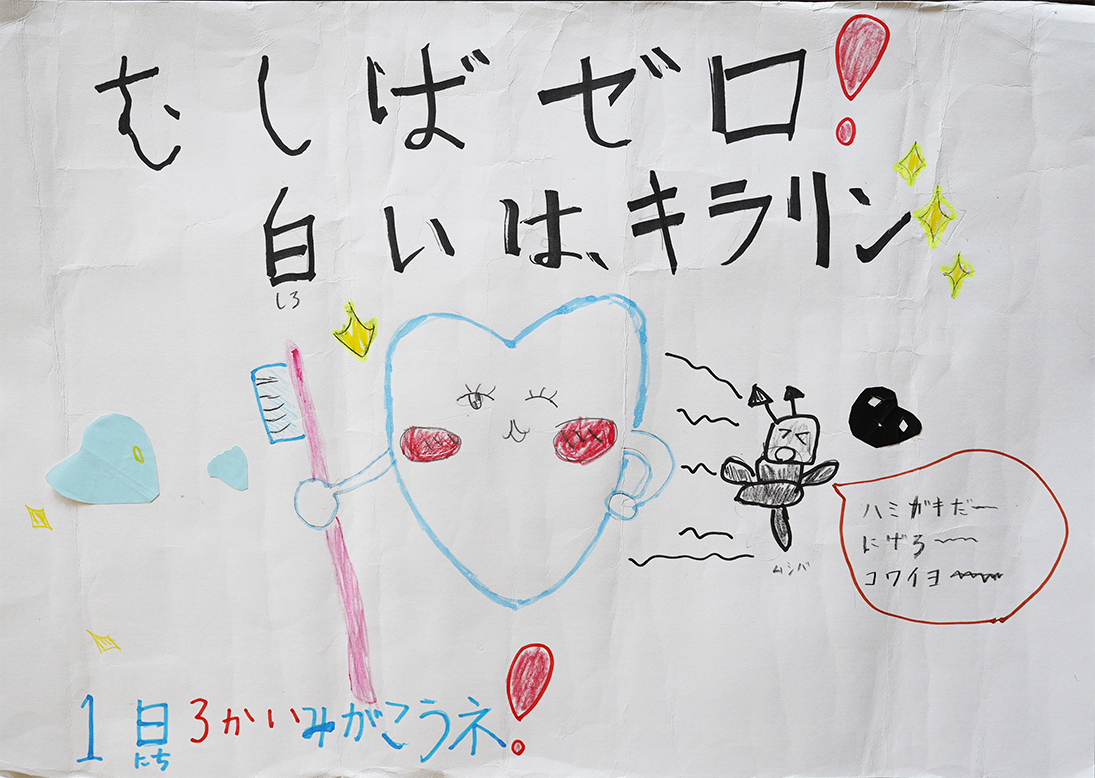 むしばゼロ!
白いは、キラリン
しろ
ムシバ
ハミガキだ〜
にげろ〜
コワイヨ〜
1日3かいみがこうネ!
にち